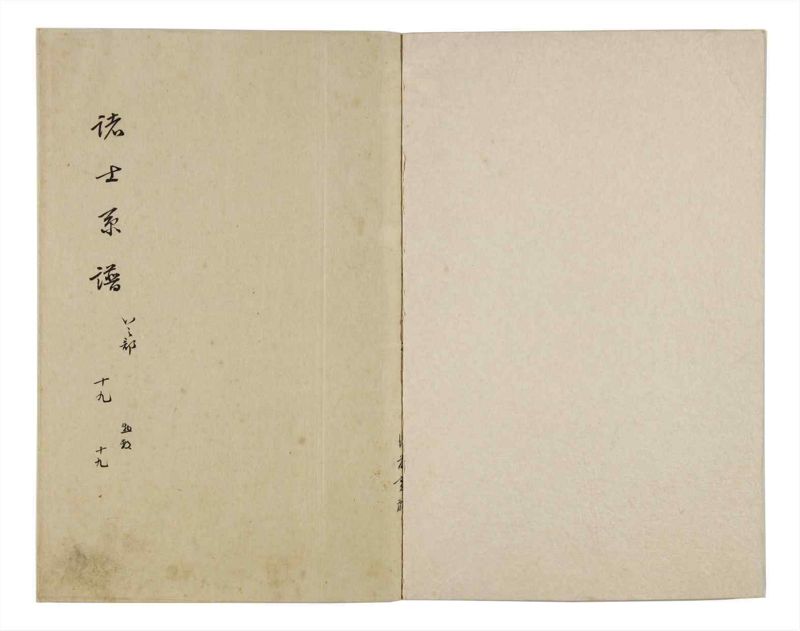 諸士系譜
いノ部
十九
惣数
十九